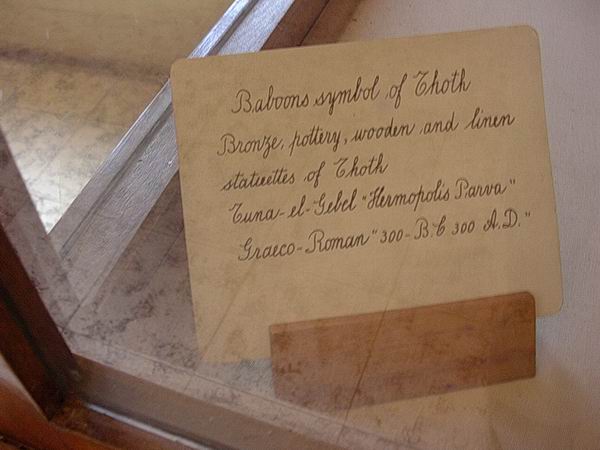 Baboons symbol of Thoth
Bronze, pottery, wooden and linen
statuettes of Thoth
Tuna-el-Gebel "Hermopolis Parva"
Graeco-Roman "300-B.C 300 A.D."